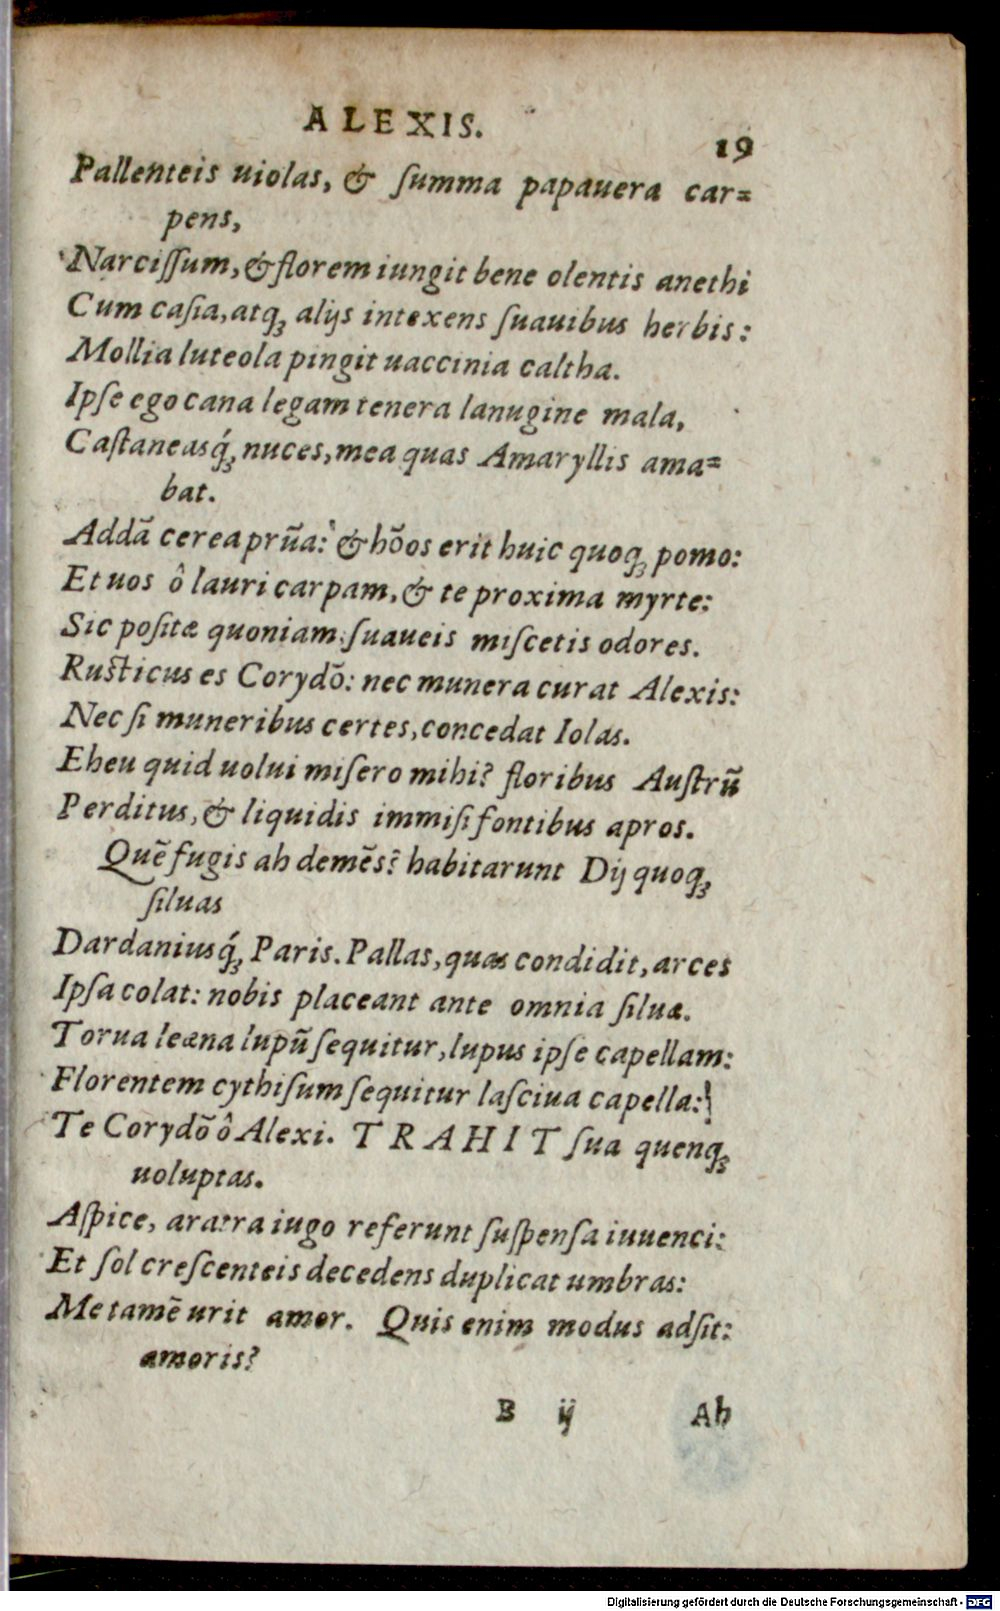 ALEXIS.
19
Pallenteis uiolas, & ſumma papauera car=
pens,
Narciſſum, & florem iungit bene olentis anethi
Cum caſia, atqꝫ alijs intexens ſuauibus herbis:
Mollia luteola pingit uaccinia caltha.
Ipſe ego cana legam tenera lanugine mala,
Caſtaneasq́ꝫ nuces, mea quas Amaryllis ama=
bat.
Addã cerea prũa: & hõos erit huic quoqꝫ pomo:
Et uos ô lauri carpam, & te proxima myrte:
Sic poſitæ quoniam ſuaueis miſcetis odores.
Ruſticus es Corydõ: nec munera curat Alexis:
Nec ſi muneribus certes, concedat Iolas.
Eheu quid uolui miſero mihi? floribus Auſtrũ
Perditus, & liquidis immiſi fontibus apros.
Quẽ fugis ah demẽs? habitarunt Dij quoqꝫ
ſiluas
Dardaniusq́ꝫ Paris. Pallas, quas condidit, arces
Ipſa colat: nobis placeant ante omnia ſiluæ.
Torua leæna lupũ ſequitur, lupus ipſe capellam:
Florentem cythiſum ſequitur laſciua capella:
Te Corydõ ô Alexi. TRAHIT ſua quenqꝫ
uoluptas.
Aſpice, aratra iugo referunt ſuſpenſa iuuenci:
Et ſol creſcenteis decedens duplicat umbras:
Me tamẽ urit amor. Quis enim modus adſit:
amoris?
B ij Ah
Digitalisierung gefördert durch die Deutsche Forschungsgemeinschaft - DFG